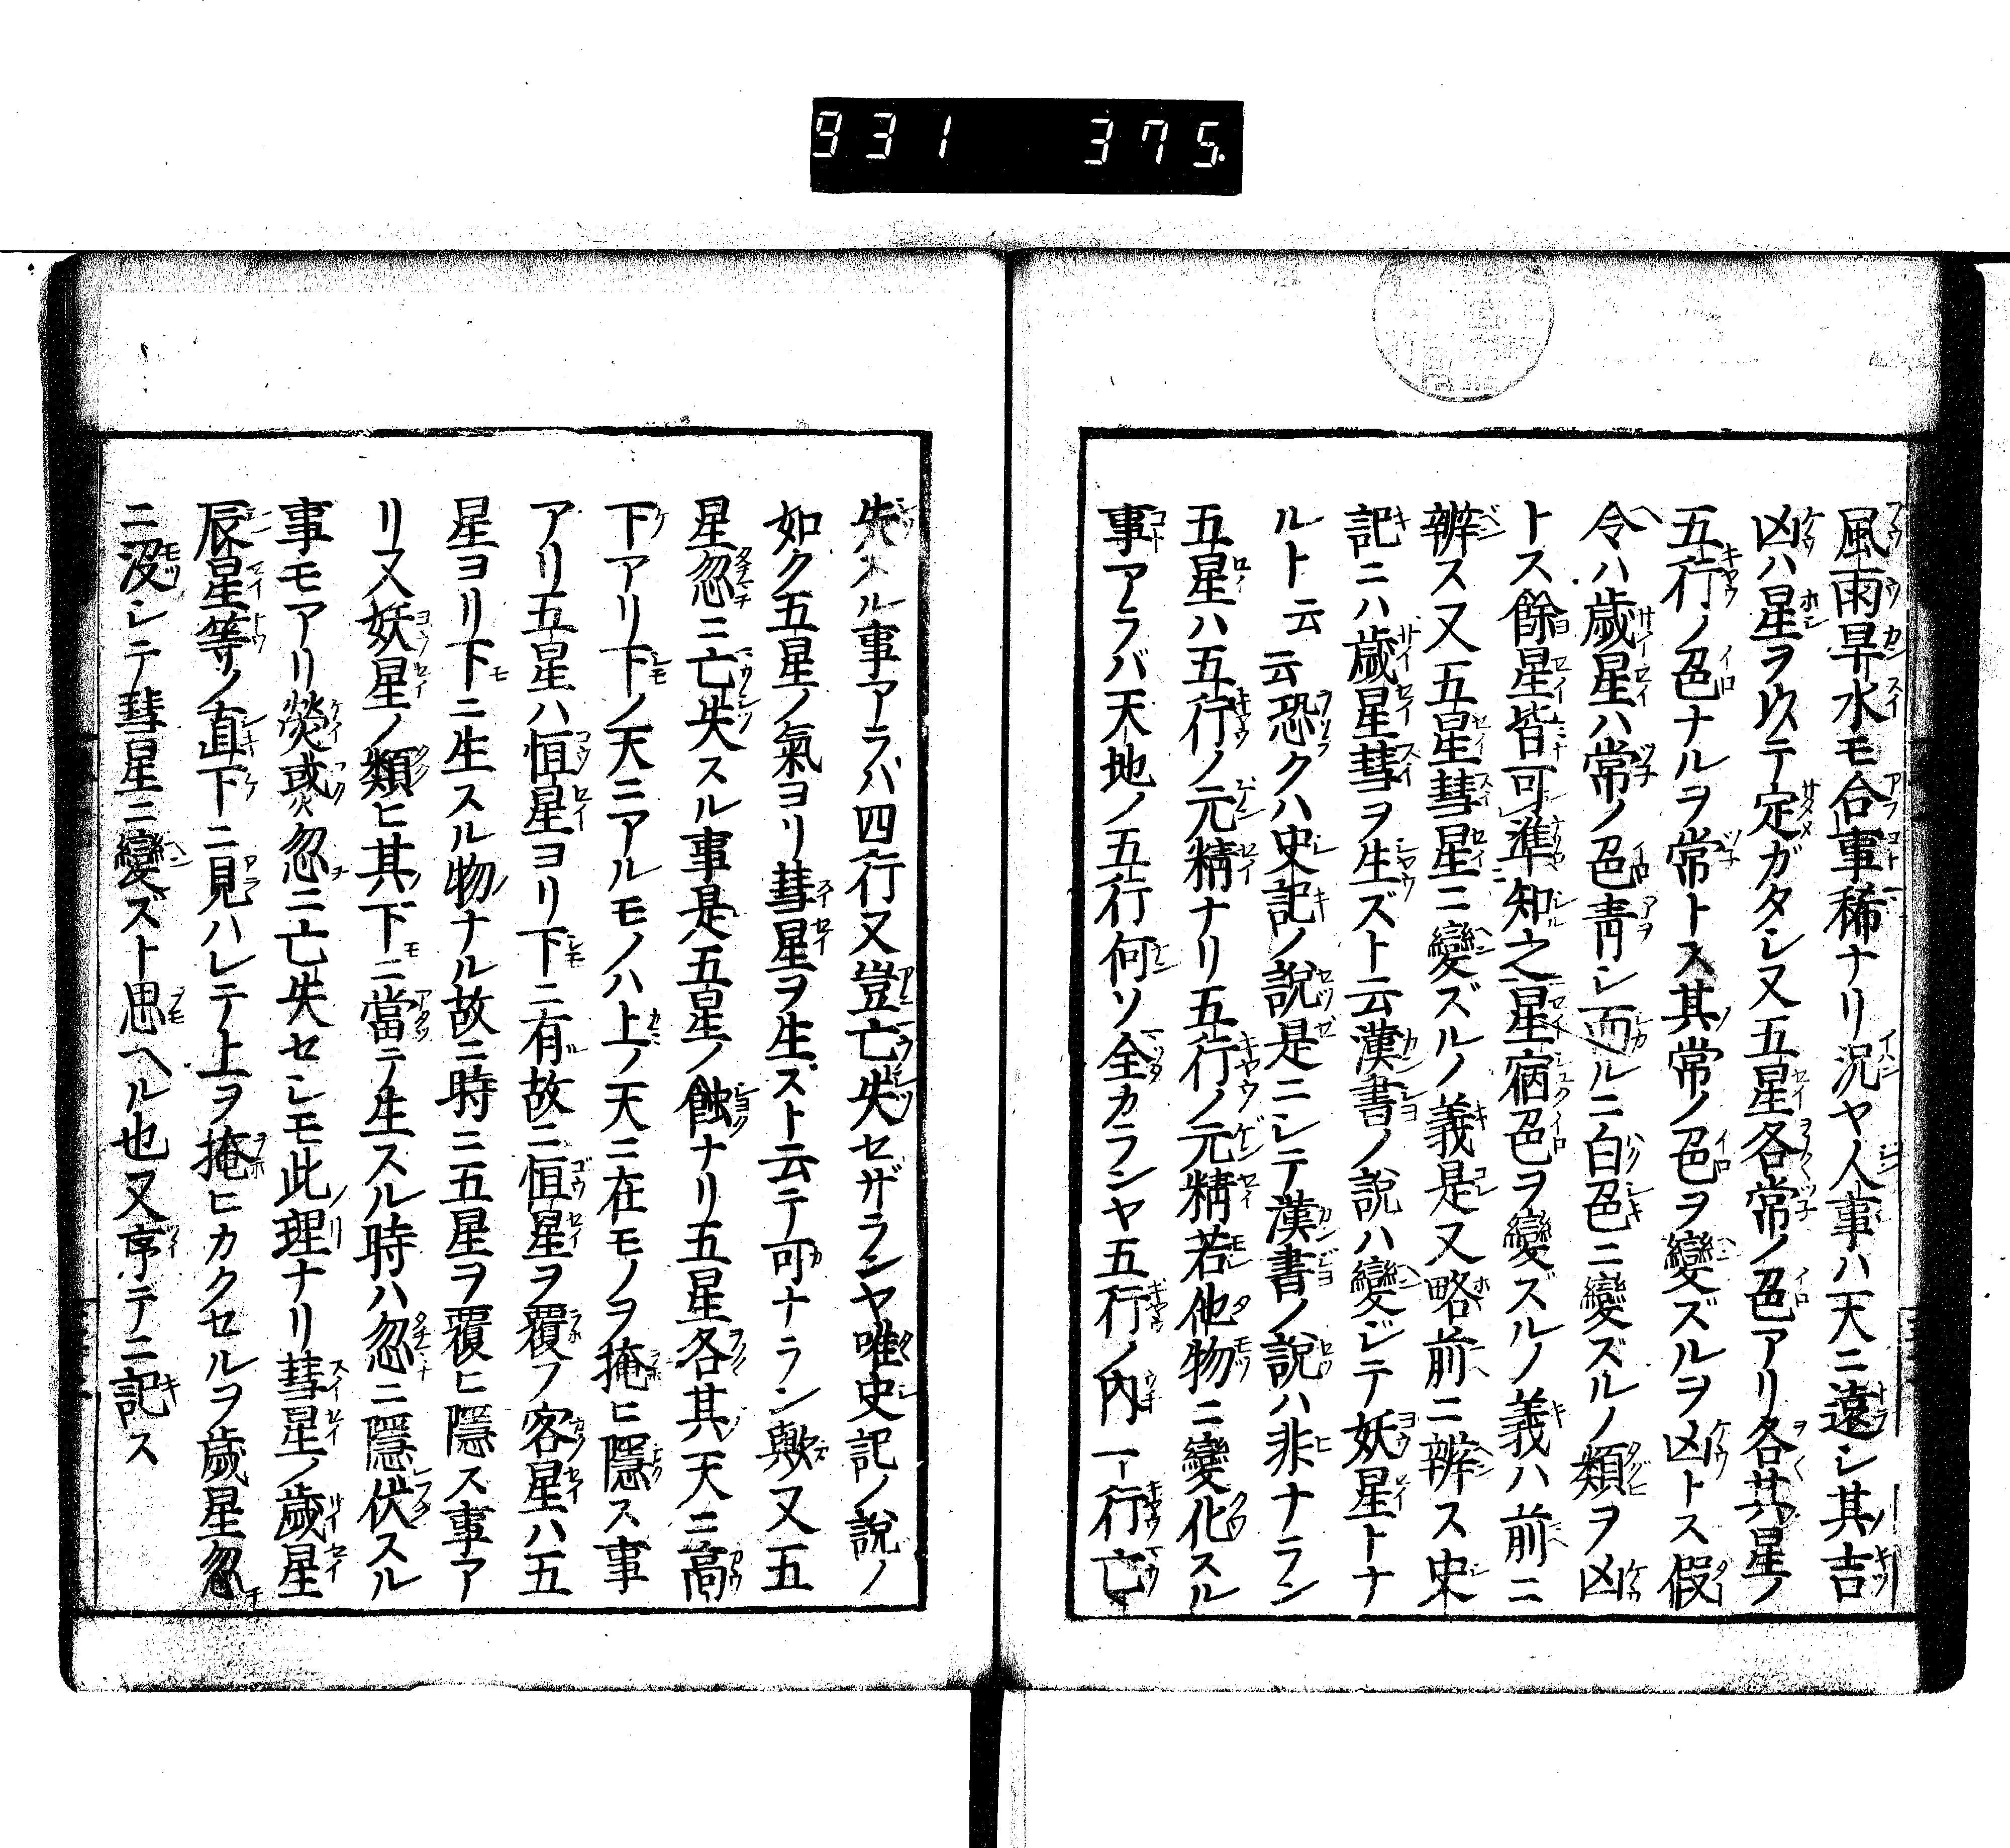 931 375
風雨旱水モ合事稀ナリ況ヤ人事ハ天ニ遠シ其吉
凶ハ星ヲ以テ定ガタシ又五星各常ノ色アリ各其星ノ
五行ノ色ナルヲ常トス其常ノ色ヲ變ズルヲ凶トス假
令ハ歳星ハ常ノ色青シ而ルニ白色ニ變ズルノ類ヲ凶
トス餘星皆可準知之星宿色ヲ變ズルノ義ハ前ニ
辨ス又五星彗星ニ變ズルノ義是又略前ニ辨ス史
記ニハ歳星彗ヲ生ズト云漢書ノ說ハ變ジテ妖星トナ
ルト云云恐クハ史記ノ說是ニシテ漢書ノ說ハ非ナラン
五星ハ五行ノ元精ナリ五行ノ元精若他物ニ變化スル
事アラバ天地ノ五行何ソ全カランヤ五行ノ內一行亡
失スル事アラハ四行又豈亡失セザランヤ唯史記ノ說ノ
如ク五星ノ氣ヨリ彗星ヲ生ズト云テ可ナラン歟又五
星忽ニ亡失スル事是五星ノ蝕ナリ五星各其天ニ高
下アリ下ノ天ニアルモノハ上ノ天ニ在モノヲ掩ヒ隱ス事
アリ五星ハ恒星ヨリ下ニ有故ニ恒星ヲ覆フ客星ハ五
星ヨリ下ニ生スル物ナル故ニ時ニ五星ヲ覆ヒ隱ス事ア
リ又妖星ノ類ヒ其下ニ當テ生スル時ハ忽ニ隱伏スル
事モアリ熒惑忽ニ亡失セシモ此理ナリ彗星ノ歲星
辰星等ノ直下ニ見ハレテ上ヲ掩ヒカクセルヲ歲星忽
ニ沒シテ彗星ニ變ズト思ヘル也又序デニ記ス